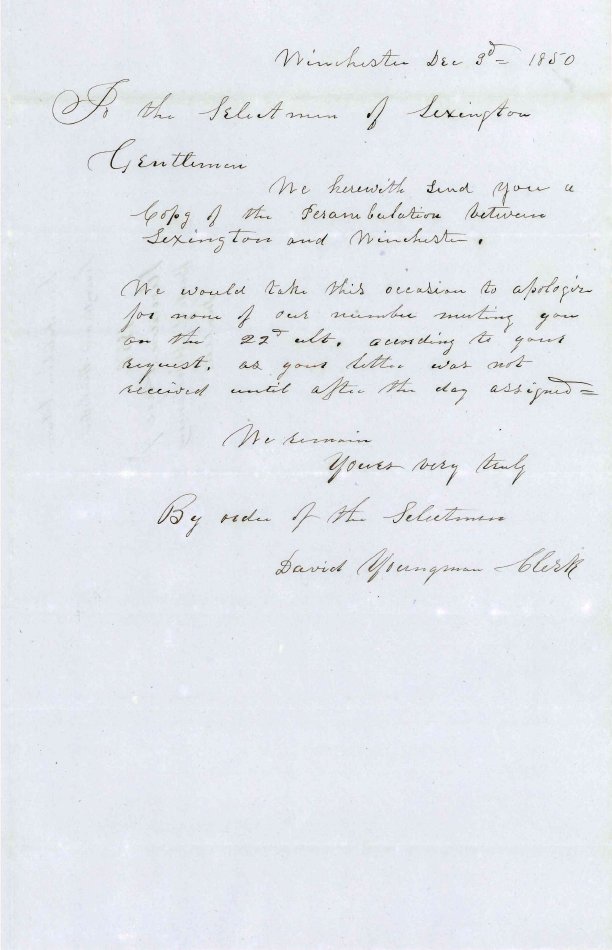 Winchester Dec 3d = 1850
To the Selectmen of Lexington
Gentlemen
We herewith send you a
Copy of the Perambulation between
Lexington and Winchester.
We would take this occasion to apologize
for none of our number meeting you
on the 22d ult. according to your
request. as your letter was not
received until after the day assigned =
We remain
Yours very truly
By order of the Selectmen
David Youngman Clerk